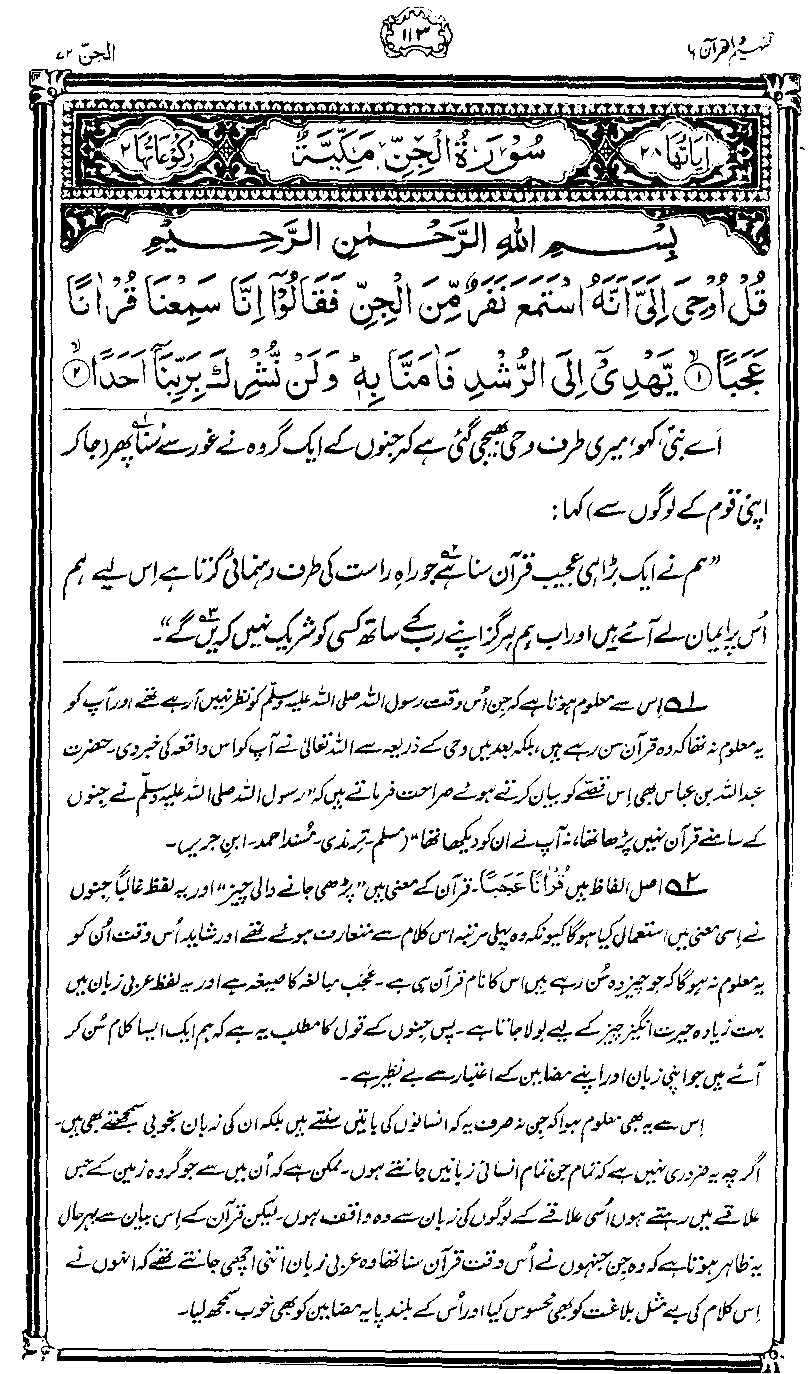 تفہیم القرآن ۶
۱۱۳
الجنّ ۷۲
اٰیَاتُهَا ۲۸
سُوْرَةُ الْجِنِّ مَكِّيَّةٌ
رُكُوْعَاتُهَا ۲
بِسْمِ اللّٰهِ الرَّحْمٰنِ الرَّحِيْمِ
قُلْ اُوْحِیَ اِلَیَّ اَنَّهُ اسْتَمَعَ نَفَرٌ مِّنَ الْجِنِّ فَقَالُوْۤا اِنَّا سَمِعْنَا قُرْاٰنًا
عَجَبًا ۙ﴿۱﴾ یَّهْدِیْۤ اِلَى الرُّشْدِ فَاٰمَنَّا بِهٖ ؕ وَلَنْ نُّشْرِكَ بِرَبِّنَاۤ اَحَدًا ۙ﴿۲﴾
اَے نبیؐ، کہو، میری طرف وحی بھیجی گئی ہے کہ جِنوں کے ایک گروہ نے غور سے سُنا۱ پھر (جا کر
اپنی قوم کے لوگوں سے) کہا:
”ہم نے ایک بڑا ہی عجیب قرآن سنا ہے۲ جو راہِ راست کی طرف رہنمائی کرتا ہے اِس لیے ہم
اُس پر ایمان لے آئے ہیں اور اب ہم ہرگز اپنے رب کے ساتھ کسی کو شریک نہیں کریں گے۳“۔
۱؎ اِس سے معلوم ہوتا ہے کہ جِن اُس وقت رسول اللہ صلی اللہ علیہ وسلّم کو نظر نہیں آ رہے تھے اور آپ کو
یہ معلوم نہ تھا کہ وہ قرآن سن رہے ہیں، بلکہ بعد میں وحی کے ذریعہ سے اللہ تعالیٰ نے آپ کو اس واقعہ کی خبر دی۔ حضرت
عبداللہ بن عباس بھی اِس قصّے کو بیان کرتے ہوئے صراحت فرماتے ہیں کہ ”رسول اللہ صلی اللہ علیہ وسلّم نے جِنوں
کے سامنے قرآن نہیں پڑھا تھا، نہ آپ نے ان کو دیکھا تھا“ (مسلم۔ ترمذی۔ مُسند احمد۔ ابنِ جریر)۔
۲؎ اصل الفاظ ہیں قُرْاٰنًا عَجَبًا۔ قرآن کے معنی ہیں ”پڑھی جانے والی چیز“ اور یہ لفظ غالباً جِنوں
نے اِسی معنی میں استعمال کیا ہوگا کیونکہ وہ پہلی مرتبہ اس کلام سے متعارف ہوئے تھے اور شاید اُس وقت اُن کو
یہ معلوم نہ ہوگا کہ جو چیز وہ سُن رہے ہیں اس کا نام قرآن ہی ہے۔ عَجَب مبالغہ کا صیغہ ہے اور یہ لفظ عربی زبان میں
بہت زیادہ حیرت انگیز چیز کے لیے بولا جاتا ہے۔ پس جِنوں کے قول کا مطلب یہ ہے کہ ہم ایک ایسا کلام سُن کر
آئے ہیں جو اپنی زبان اور اپنے مضامین کے اعتبار سے بے نظیر ہے۔
اِس سے یہ بھی معلوم ہوا کہ جِن نہ صرف یہ کہ انسانوں کی باتیں سنتے ہیں بلکہ ان کی زبان بخوبی سمجھتے بھی ہیں۔
اگرچہ یہ ضروری نہیں ہے کہ تمام جن تمام انسانی زبانیں جانتے ہوں۔ ممکن ہے کہ اُن میں سے جو گروہ زمین کے جس
علاقے میں رہتے ہوں اُسی علاقے کے لوگوں کی زبان سے وہ واقف ہوں۔ لیکن قرآن کے اِس بیان سے بہرحال
یہ ظاہر ہوتا ہے کہ وہ جِن جنہوں نے اُس وقت قرآن سنا تھا وہ عربی زبان اتنی اچھی جانتے تھے کہ انہوں نے
اِس کلام کی بے مثل بلاغت کو بھی محسوس کیا اور اُس کے بلند پایہ مضامین کو بھی خوب سمجھ لیا۔